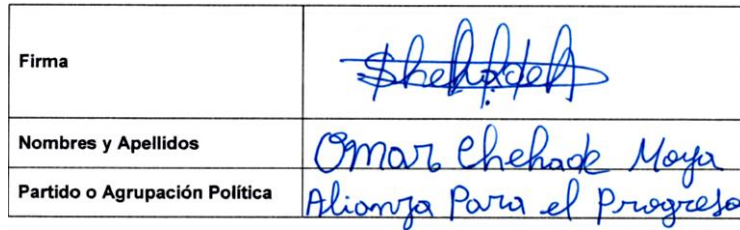 Firma
Nombres y Apellidos Omar Chehade Moya
Partido o Agrupación Política Alianza Para el Progreso